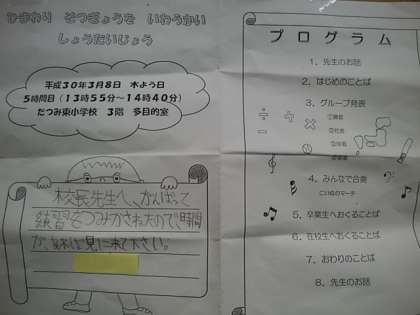 ひまわり そつぎょうを いわうかい
しょうたいじょう
平成３０年３月８日 木よう日
５時間目（１３時５５分～１４時４０分）
たつみ東小学校 ３階 多目的室
校長先生へ、がんばって
練習をつみかさねたので、時間
があれば見に来て下さい。
プログラム
１、先生のお話
２、はじめのことば
３、グループ発表
①算数
②社会
③体育
４、みんなで合奏
こいぬのマーチ
５、卒業生へおくることば
６、在校生へおくることば
７、おわりのことば
８、先生のお話